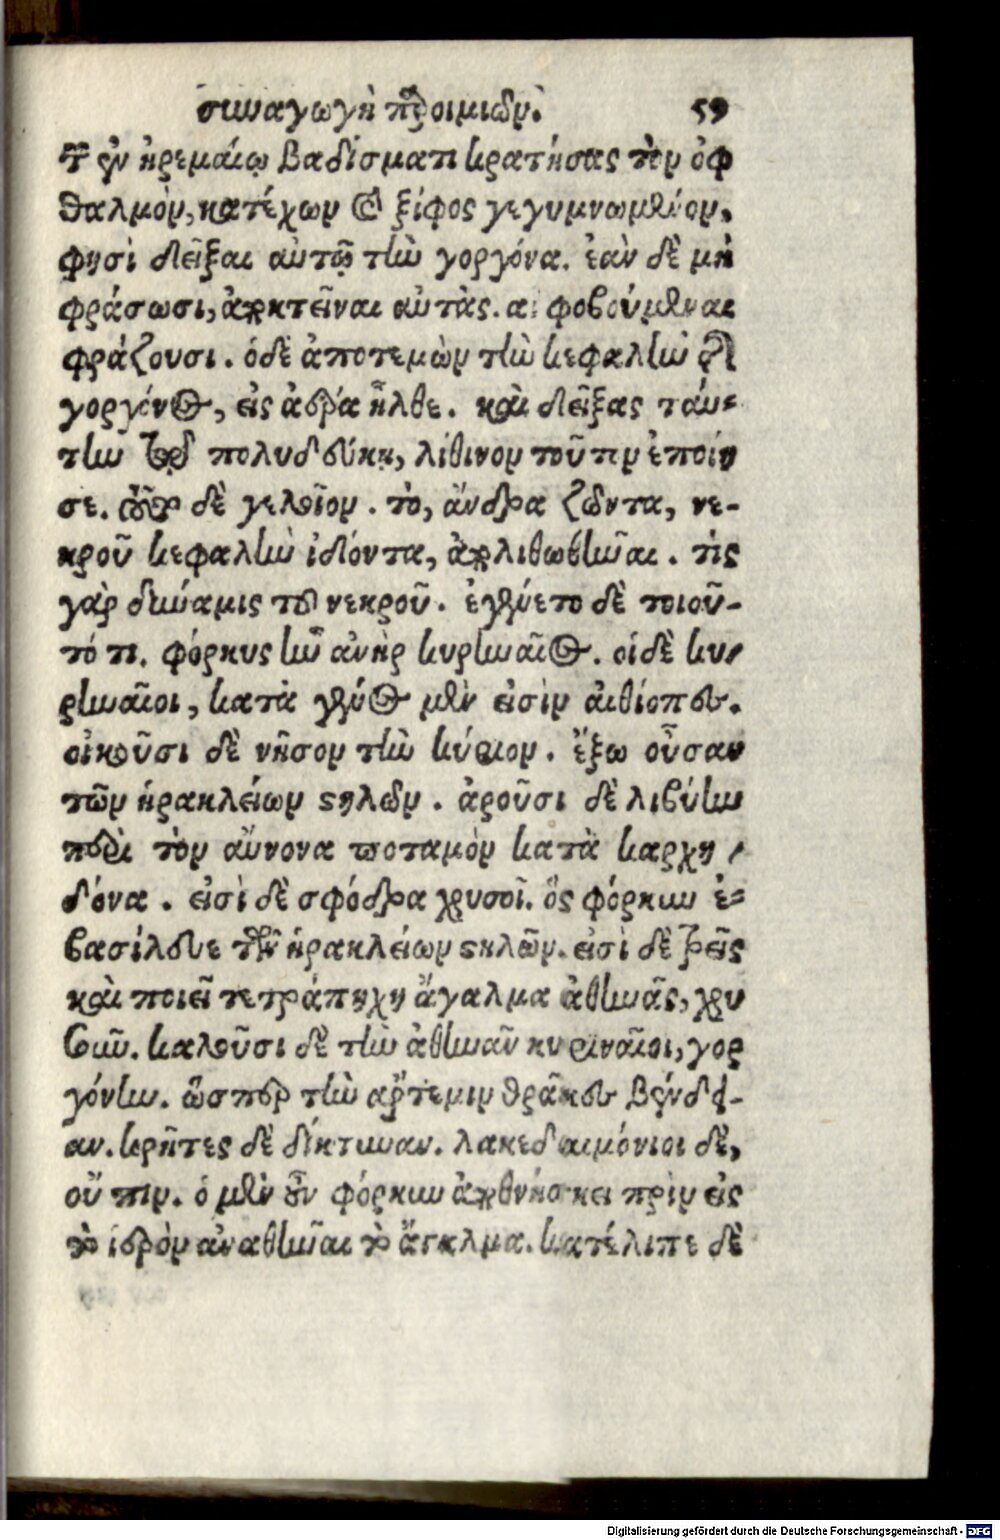 συναγωγὴ προιμιῶν. 59
τ ἐν ἠρεμαίῳ βαδίσματι κρατήσας τὸν ὀφ
θαλμὸν, κατέχων καὶ ξίφος γεγυμνωμένον,
φησὶ δεῖξαι αὐτῷ τὴν γοργόνα. ἐὰν δὲ μὴ
φράσωσι, ἀποκτεῖναι αὐτὰς. αἱ φοβούμεναι
φράζουσι. ὁδὲ ἀποτεμὼν τὴν κεφαλὴν τῆς
γοργόνος, εἰς ἀέρα ἦλθε. καὶ δείξας ταύ-
την τῷ πολυδεύκῃ, λίθινον τοῦτον ἐποίη
σε. τοῦτο δὲ γελοῖον. τὸ, ἄνδρα ζῶντα, νε-
κροῦ κεφαλὴν ἰδόντα, ἀπολιθωθῆναι. τίς
γὰρ δύναμις τοῦ νεκροῦ. ἐγένετο δὲ τοιοῦ-
τό τι. φόρκυς ἦν ἀνὴρ κυρηναῖος. οἱδὲ κυ-
ρηναῖοι, κατὰ γένος μὲν εἰσὶν αἰθίοπες.
οἰκοῦσι δὲ νῆσον τὴν κύρνον. ἔξω οὖσαν
τῶν ἡρακλείων στηλῶν. ἀροῦσι δὲ λιβύην
περὶ τὸν αὔνονα ποταμὸν κατὰ καρχη-
δόνα. εἰσὶ δὲ σφόδρα χρυσοῖ. ὃς φόρκυν ἐ-
βασίλευε τῶν ἡρακλείων στηλῶν. εἰσὶ δὲ τρεῖς
καὶ ποιεῖ τετράπηχυ ἄγαλμα ἀθηνᾶς, χρυ
σοῦν. καλοῦσι δὲ τὴν ἀθηνᾶν κυρηναῖοι, γορ
γόνην. ὥσπερ τὴν ἄρτεμιν θρᾶκες βένδι-
αν. κρῆτες δὲ δίκτυναν. λακεδαιμόνιοι δὲ,
οὔπιν. ὁ μὲν οὖν φόρκυν ἀποθνήσκει πρὶν εἰς
τὸ ἱερὸν ἀναθῆναι τὸ ἄγαλμα. κατέλιπε δὲ
Digitalisierung gefördert durch die Deutsche Forschungsgemeinschaft - DFG